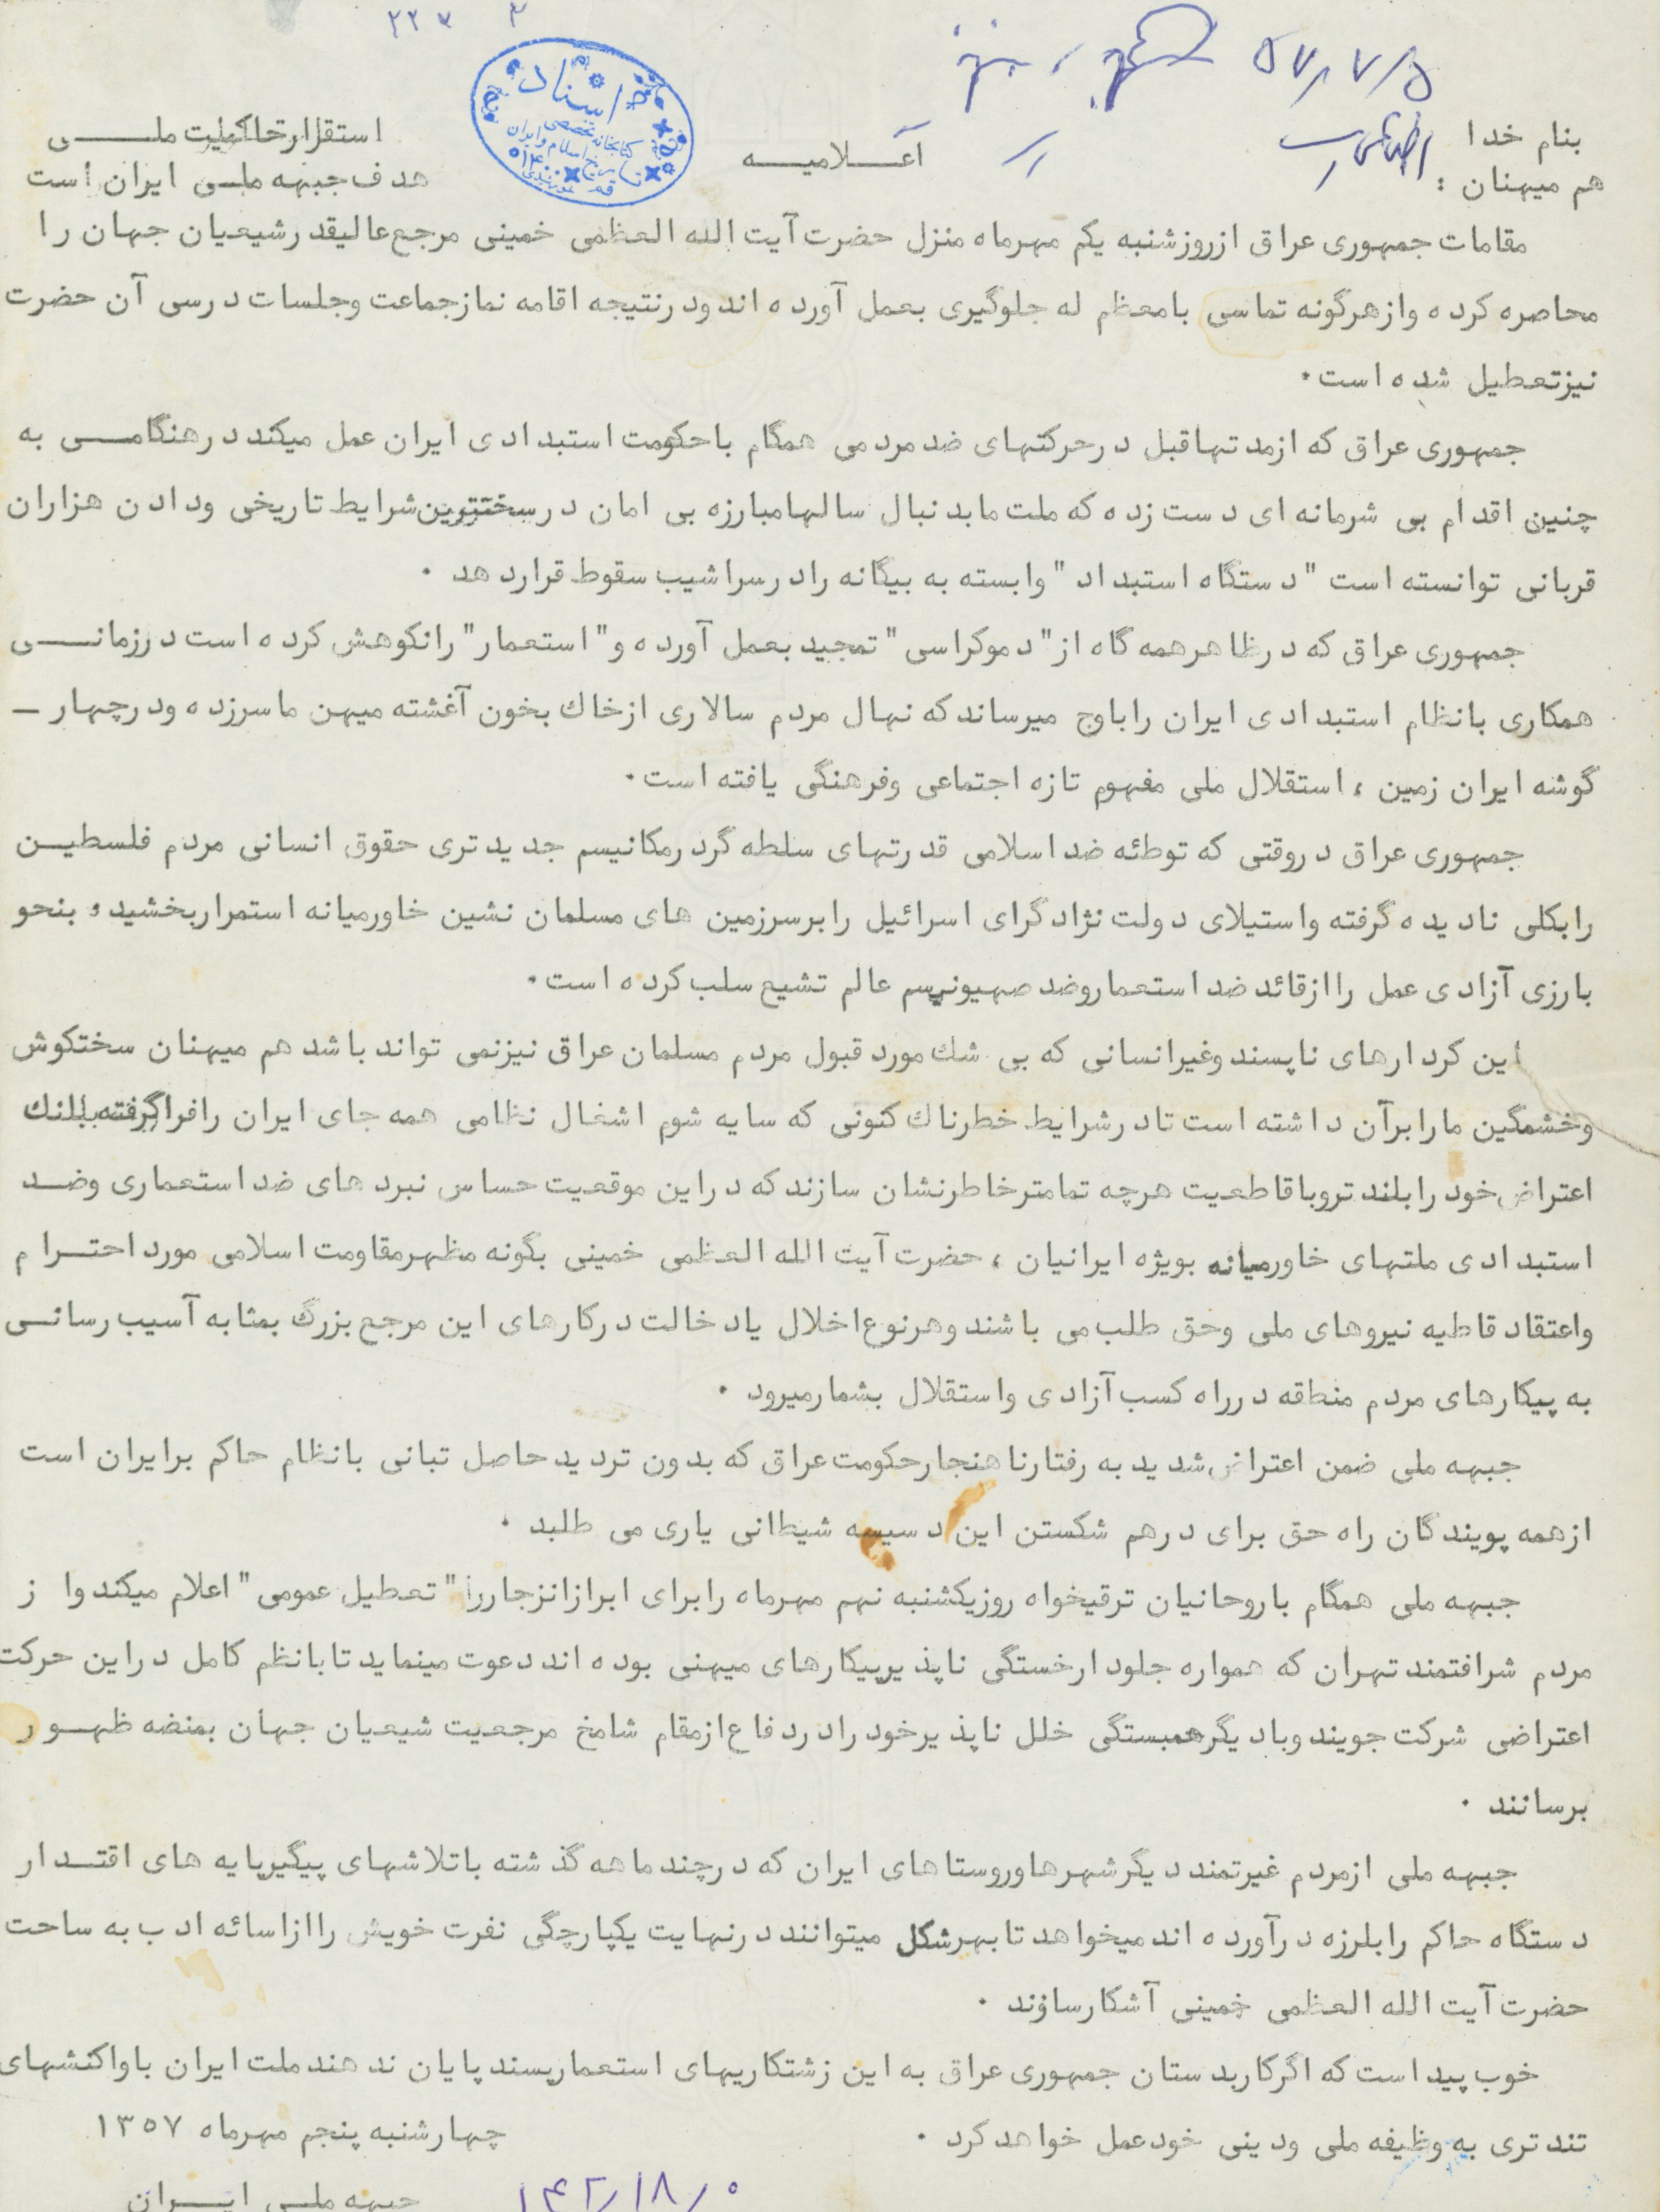 ۲۲۷ ۳
۵۷/۷/۵
اسناد
کتابخانه تخصصی
تاریخ اسلام و ایران
قم
بنام خدا
اعـــلامیـــه
استقرار حاکمیت ملــــی
هم میهنان :
هدف جبهه ملـی ایران است
مقامات جمهوری عراق ازروزشنبه یکم مهرماه منزل حضرت آیت الله العظمی خمینی مرجع عالیقدر شیعیان جهان را
محاصره کرده وازهرگونه تماسی بامعظم له جلوگیری بعمل آورده اند ودرنتیجه اقامه نمازجماعت وجلسات درسی آن حضرت
نیزتعطیل شده است۰
جمهوری عراق که ازمدتهاقبل درحرکتهای ضدمردمی همگام باحکومت استبدادی ایران عمل میکند درهنگامـــی به
چنین اقدام بی شرمانه ای دست زده که ملت مابدنبال سالهامبارزه بی امان درسختترین شرایط تاریخی ودادن هزاران
قربانی توانسته است "دستگاه استبداد" وابسته به بیگانه رادرسراشیب سقوط قراردهد ۰
جمهوری عراق که درظاهرهمه گاه از"دموکراسی" تمجید بعمل آورده و"استعمار" رانکوهش کرده است درزمانــــی
همکاری بانظام استبدادی ایران راباوج میرساند که نهال مردم سالاری ازخاك بخون آغشته میهن ماسرزده ودرچهار ــ
گوشه ایران زمین ، استقلال ملی مفهوم تازه اجتماعی وفرهنگی یافته است۰
جمهوری عراق دروقتی که توطئه ضداسلامی قدرتهای سلطه گردرمکانیسم جدیدتری حقوق انسانی مردم فلسطیـن
رابکلی نادیده گرفته واستیلای دولت نژادگرای اسرائیل رابرسرزمین های مسلمان نشین خاورمیانه استمراربخشیده بنحو
بارزی آزادی عمل راازقائد ضداستعماروضدصهیونیسم عالم تشیع سلب کرده است۰
این کردارهای ناپسند وغیرانسانی که بی شك مورد قبول مردم مسلمان عراق نیزنمی تواند باشد هم میهنان سختکوش
وخشمگین مارابرآن داشته است تادرشرایط خطرناك کنونی که سایه شوم اشغال نظامی همه جای ایران رافراگرفته بانك
اعتراض خود رابلندتروباقاطعیت هرچه تمامترخاطرنشان سازند که دراین موقعیت حساس نبردهای ضداستعماری وضــد
استبدادی ملتهای خاورمیانه بویژه ایرانیان ، حضرت آیت الله العظمی خمینی بگونه مظهرمقاومت اسلامی مورد احتــرام
واعتقاد قاطبه نیروهای ملی وحق طلب می باشند وهرنوع اخلال یادخالت درکارهای این مرجع بزرگ بمثابه آسیب رسانــی
به پیکارهای مردم منطقه درراه کسب آزادی واستقلال بشمارمیرود ۰
جبهه ملی ضمن اعتراض شدید به رفتارناهنجارحکومت عراق که بدون تردید حاصل تبانی بانظام حاکم برایران است
ازهمه پویندگان راه حق برای درهم شکستن این دسیسه شیطانی یاری می طلبد ۰
جبهه ملی همگام باروحانیان ترقیخواه روزیکشنبه نهم مهرماه رابرای ابرازانزجاررا "تعطیل عمومی" اعلام میکند واز
مردم شرافتمند تهران که همواره جلودارخستگی ناپذیرپیکارهای میهنی بوده اند دعوت مینماید تابانظم کامل دراین حرکت
اعتراضی شرکت جویند وبادیگرهمبستگی خلل ناپذیرخود رادردفاع ازمقام شامخ مرجعیت شیعیان جهان بمنضه ظهــور
برسانند ۰
جبهه ملی ازمردم غیرتمند دیگرشهرهاوروستاهای ایران که درچندماهه گذشته باتلاشهای پیگیرپایه های اقتــدار
دستگاه حاکم رابلرزه درآورده اند میخواهد تابهرشکل میتوانند درنهایت یکپارچگی نفرت خویش راازاسائه ادب به ساحت
حضرت آیت الله العظمی خمینی آشکارسازند ۰
خوب پیداست که اگرکاربدستان جمهوری عراق به این زشتکاریهای استعمارپسند پایان ندهند ملت ایران باواکنشهای
تندتری به وظیفه ملی ودینی خودعمل خواهد کرد ۰
چهارشنبه پنجم مهرماه ۱۳۵۷
جبهه ملـی ایـــران